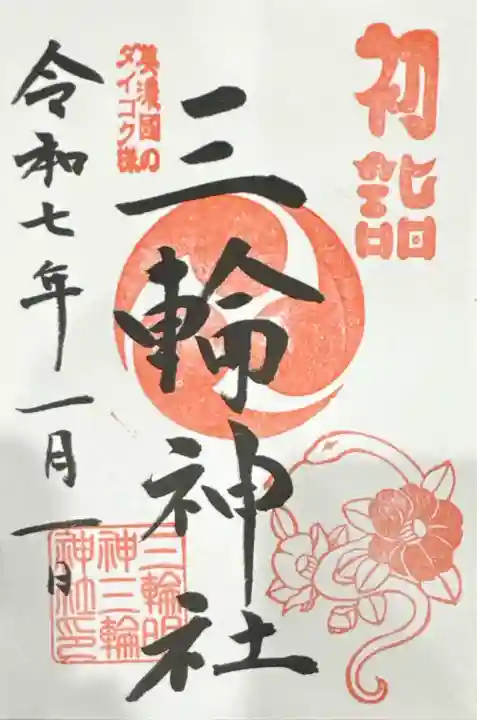 初詣
美濃國の
ダイコク様
三輪神社
令和七年一月一日
三輪明
神三輪
神社印